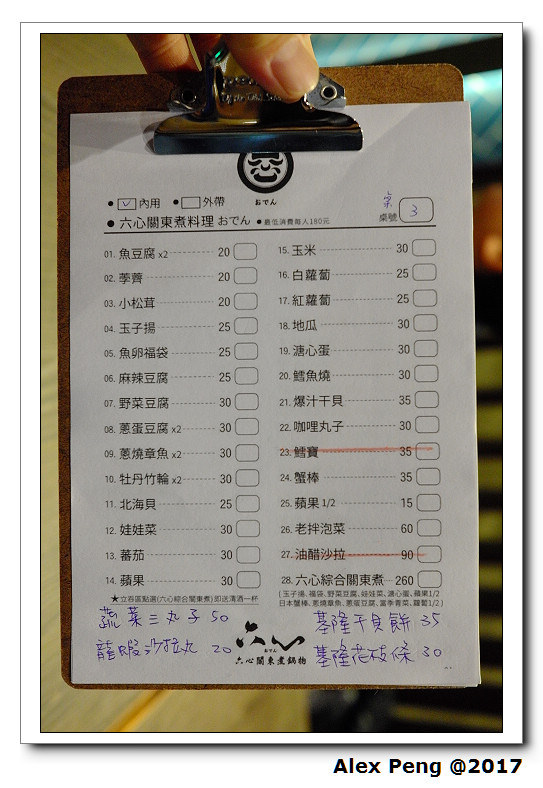 おでん
● ☑ 內用 ● □ 外帶
● 六心關東煮料理 おでん ● 最低消費每人180元
桌號 3
01. 魚豆腐 x2 20
02. 荸薺 20
03. 小松茸 20
04. 玉子揚 25
05. 魚卵福袋 25
06. 麻辣豆腐 25
07. 野菜豆腐 30
08. 蔥蛋豆腐 x2 30
09. 蔥燒章魚 x2 30
10. 牡丹竹輪 x2 30
11. 北海貝 25
12. 娃娃菜 30
13. 蕃茄 30
14. 蘋果 30
★立吞區點選(六心綜合關東煮)即送清酒一杯
15. 玉米 30
16. 白蘿蔔 25
17. 紅蘿蔔 25
18. 地瓜 30
19. 溏心蛋 30
20. 鱈魚燒 30
21. 爆汁干貝 35
22. 咖哩丸子 30
23. 鱈寶 35
24. 蟹棒 35
25. 蘋果 1/2 15
26. 老拌泡菜 60
27. 油醋沙拉 90
28. 六心綜合關東煮 260
(玉子揚、福袋、野菜豆腐、娃娃菜、溏心蛋、蘋果1/2
日本蟹棒、蔥燒章魚、蔥蛋豆腐、當季青菜、蘿蔔1/2)
蔬菜三丸子 50
龍蝦沙拉丸 20
基隆干貝餅 35
基隆花枝條 30
六心
おでん
六心關東煮鍋物
Alex Peng @2017